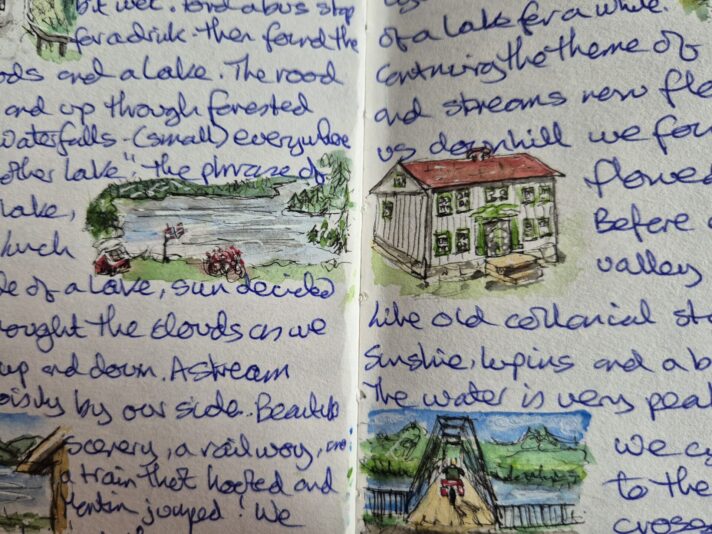 bit wet. Found a bus stop
for a drink. Then found the
ods and a lake. The road
and up through forested
waterfalls - (small) everywhere
other lake". the phrase of
lake,
lunch
de of a lake, sun decided
rought the clouds as we
up and down. A stream
oisily by our side. Beautiful
scenery, a railway, and
a train that hooted and
jumped! We
of a lake for a while.
Continuing the theme of
and streams now fle
us downhill we fou
flowed
Before
valley
Like old collonial sta
Sunshie, lupins and a b
The water is very peat
we cy
to the
crosse